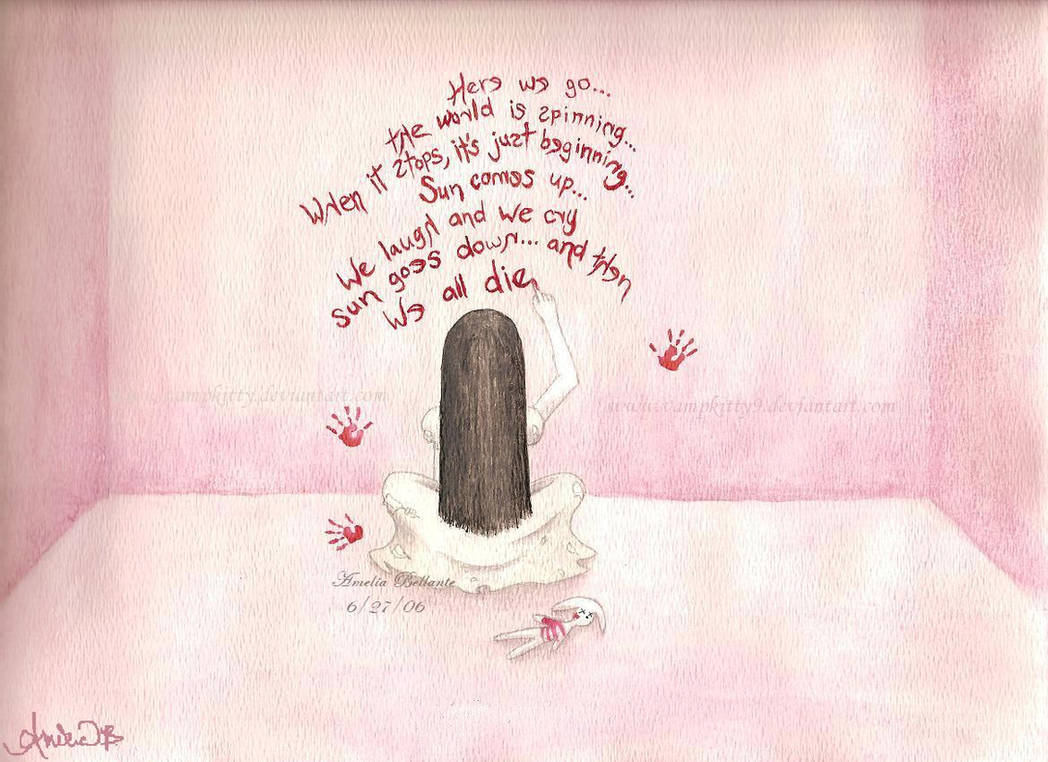 Here we go...
the world is spinning...
When it stops, it's just beginning...
Sun comes up...
We laugh and we cry
sun goes down... and then
We all die
www.vampkitty9.deviantart.com
Amelia Bellante
6/27/06